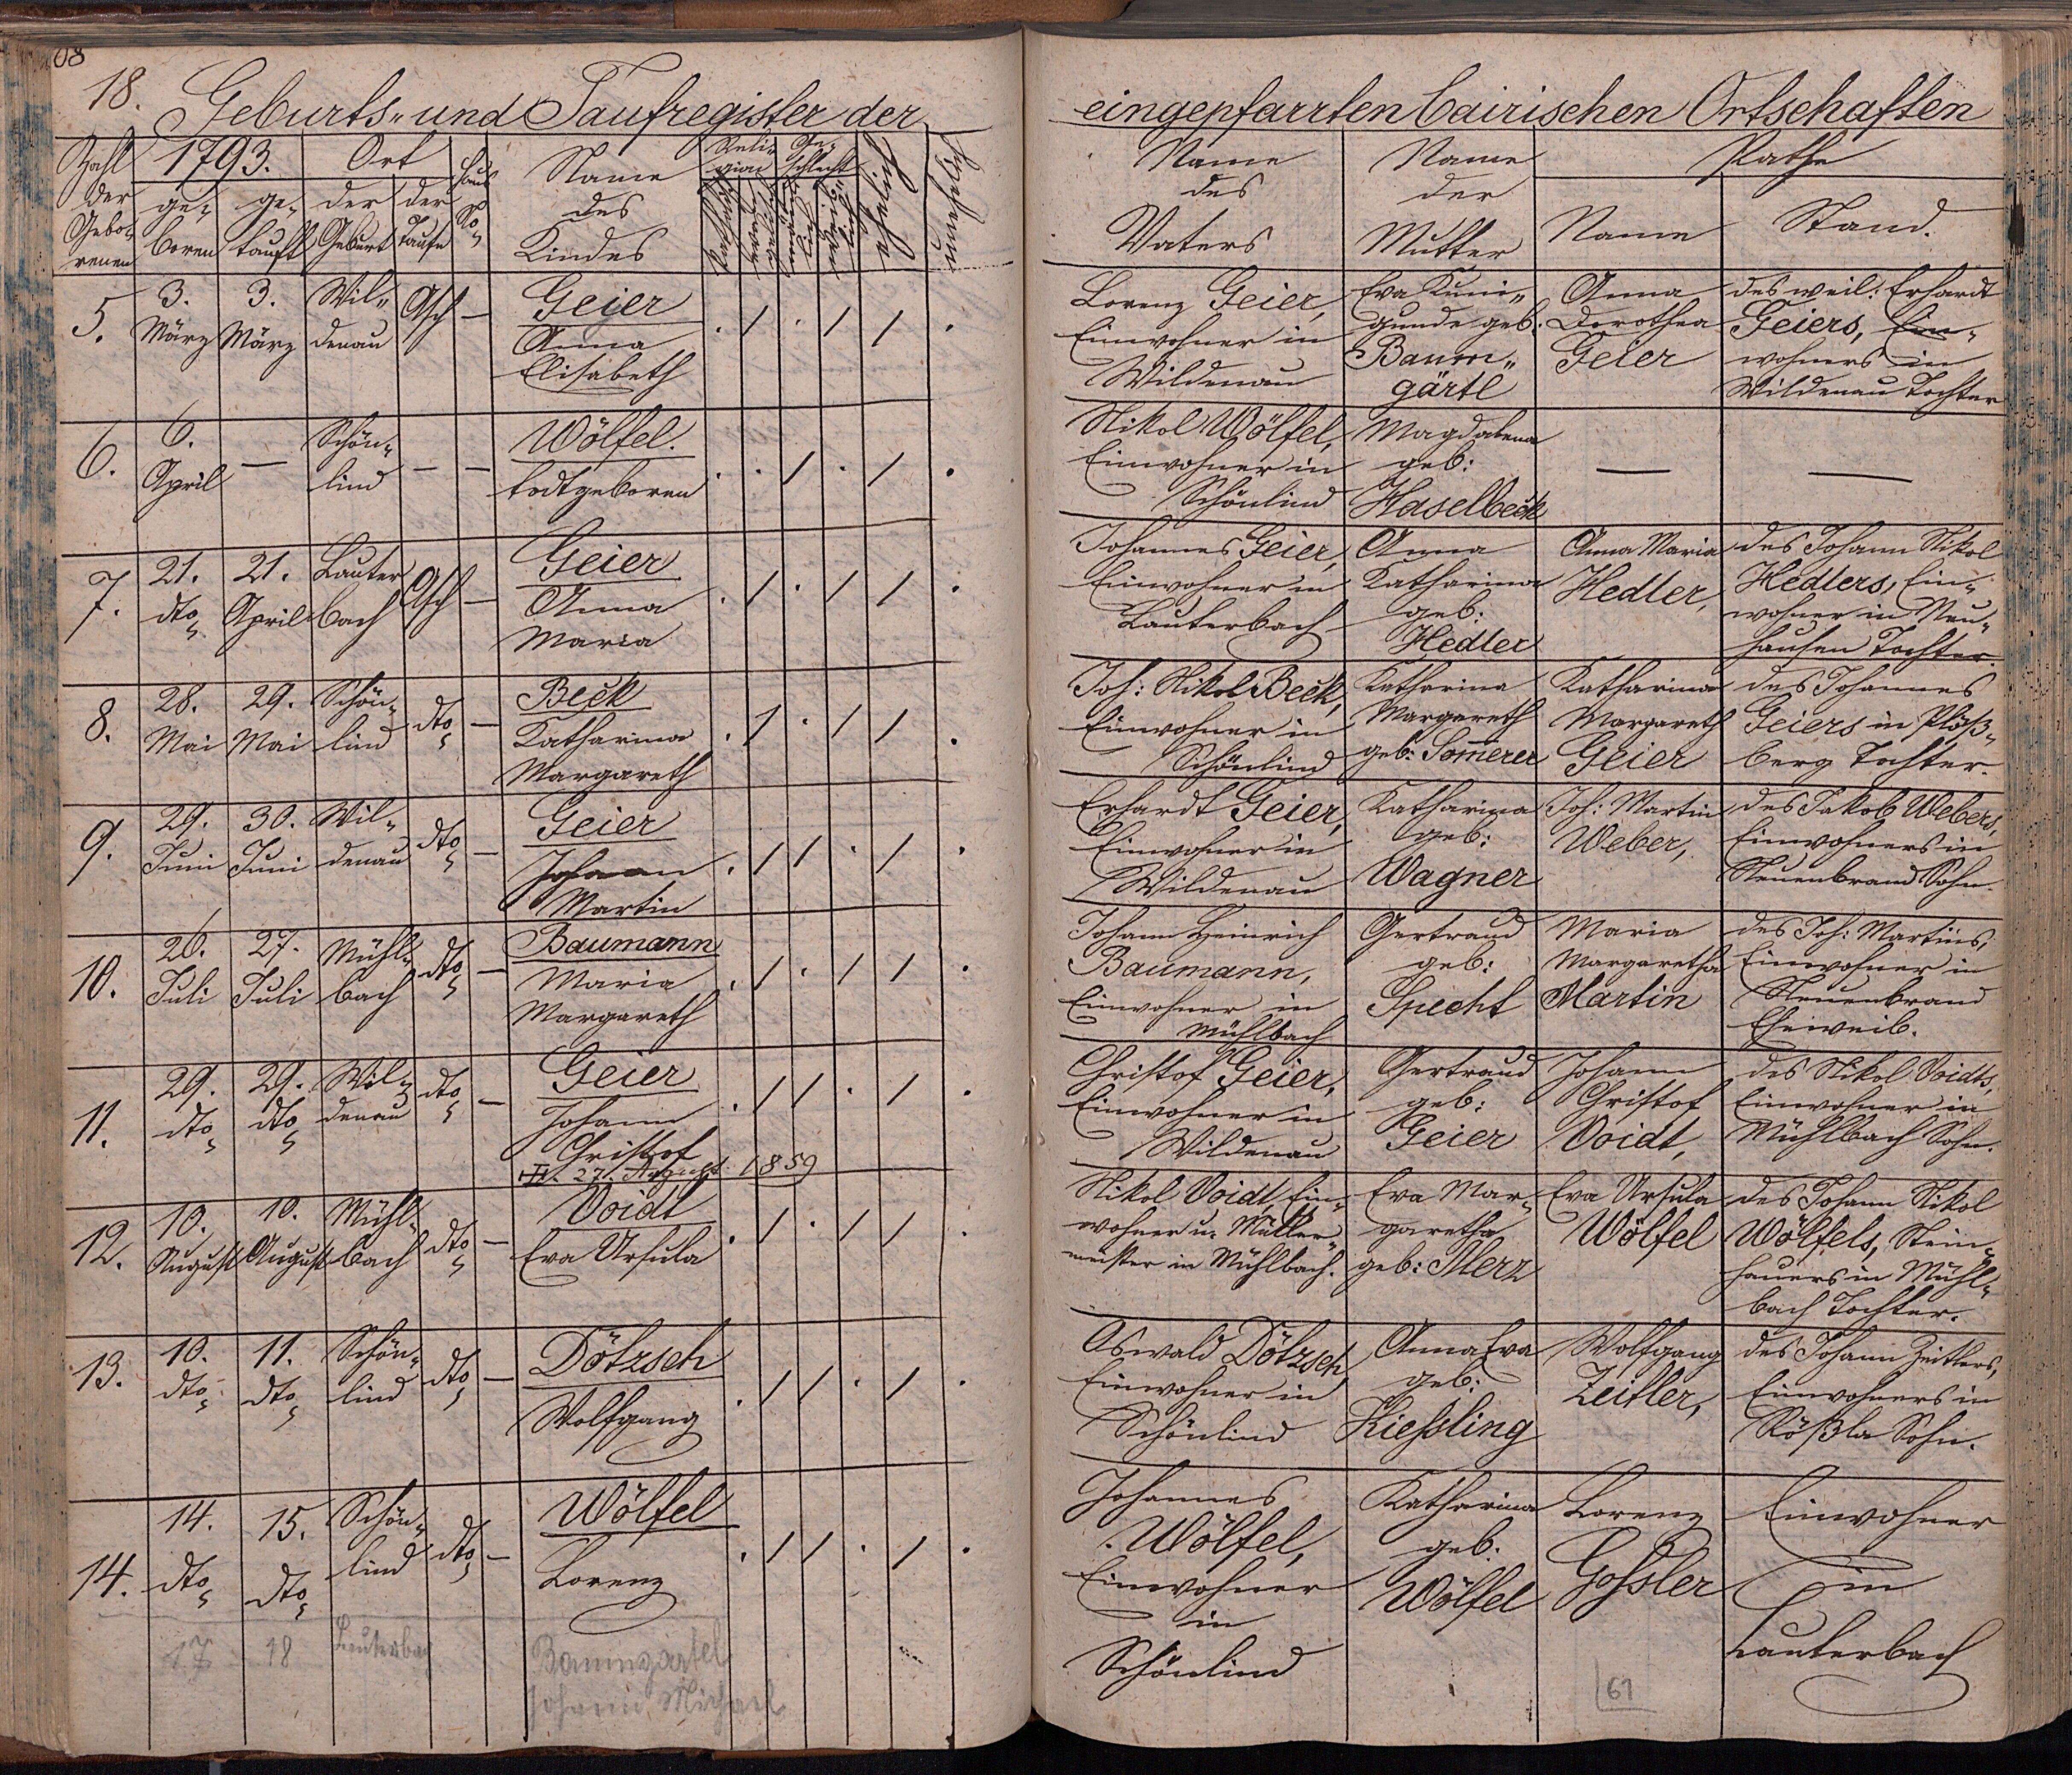 08
18. Geburts- und Taufregister der eingepfarrten bairischen Ortschaften
Zahl der Gebo- renen
1793.
ge- boren
ge- tauft
Ort
der Geburt
der Taufe
Haus No
Name des Kindes
Reli- gion
katholisch
Ge- schlecht
ehelich
unehelich
Name des Vaters
Name der Mutter
Pathe
Name
Stand.
5. 3. März 3. März Wil- denau Asch —
Geier
Anna
Elisabeth
Lorenz Geier,
Einwohner in
Wildenau
Eva Kuni-
gunde geb.
Baum-
gärtl
Anna
Dorothea
Geier
des weil: Erhardt
Geiers, Ein-
wohners in
Wildenau Tochter
6. 6. April — Schön- lind — —
Wölfel.
todtgeboren
Nikol Wölfel,
Einwohner in
Schönlind
Magdalena
geb:
Haselbeck
— —
7. 21. dto 21. April Lauter bach Asch —
Geier
Anna
Maria
Johannes Geier,
Einwohner in
Lauterbach
Anna
Katharina
geb:
Hedler
Anna Maria
Hedler,
des Johann Nikol
Hedlers, Ein-
wohner in Neu-
hausen Tochter.
8. 28. Mai 29. Mai Schön- lind dto —
Beck
Katharina
Margareth
Joh: Nikol Beck,
Einwohner in
Schönlind
Katharina
Margareth
geb: Som̄erer
Katharina
Margareth
Geier
des Johannes
Geiers in Plöß-
berg Tochter.
9. 29. Juni 30. Juni Wil- denau dto —
Geier
Johann
Martin
Erhardt Geier,
Einwohner in
Wildenau
Katharina
geb:
Wagner
Joh: Martin
Weber,
des Jakob Webers,
Einwohners in
Neuenbrand Sohn.
10. 26. Juli 27. Juli Mühl- bach dto —
Baumann
Maria
Margareth
Johann Heinrich
Baumann,
Einwohner in
Mühlbach
Gertraud
geb:
Specht
Maria
Margaretha
Martin
des Joh: Martins,
Einwohner in
Neuenbrand
Eheweib.
11. 29. dto 29. dto Wil- denau dto —
Geier
Johann
Christof
27. August 1859
Christof Geier,
Einwohner in
Wildenau
Gertraud
geb:
Geier
Johann
Christof
Voidt,
des Nikol Voidts,
Einwohner in
Mühlbach Sohn.
12. 10. August 10. August Mühl- bach dto —
Voidt
Eva Ursula
Nikol Voidt, Ein-
wohner u. Müller-
meister in Mühlbach.
Eva Mar-
garetha
geb: Merz
Eva Ursula
Wölfel
des Johann Nikol
Wölfels, Stein-
hauers in Mühl-
bach Tochter.
13. 10. dto 11. dto Schön- lind dto —
Dötzsch
Wolfgang
Oswald Dötzsch,
Einwohner in
Schönlind
Anna Eva
geb:
Kießling
Wolfgang
Zeitler,
des Johann Zeitlers,
Einwohners in
Rößla Sohn.
14. 14. dto 15. dto Schön- lind dto —
Wölfel
Lorenz
Johannes
Wölfel,
Einwohner
in
Schönlind
Katharina
geb:
Wölfel
Lorenz
Goßler
Einwohner
in
Lauterbach
17 18 Lauterbach
Baumgartel
Johann Michael
61